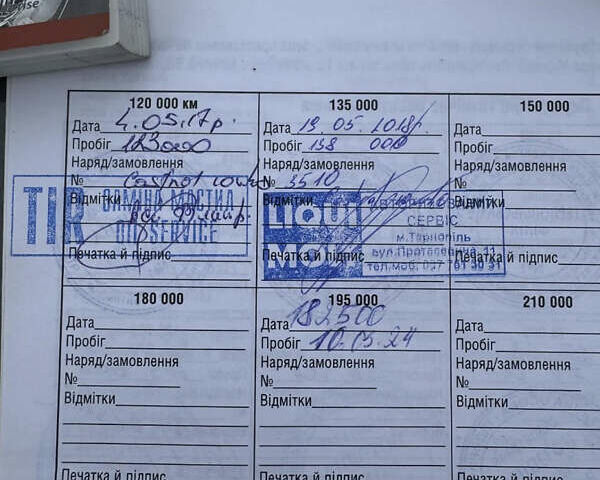 120 000 км
Дата 4.05.17р.
Пробіг 123000
Наряд/замовлення
№ Castrol 10w40
Відмітки
TIR ЗАМІНА МАСТИЛ
OIL SERVICE
Печатка й підпис
135 000
Дата 19.05.2018р.
Пробіг 138 000
Наряд/замовлення
№ 3510
Відмітки
LIQUI MOLY
СЕРВІС
м.Тернопіль
вул.Протасевича, 11
тел.моб. 097 781 30 31
Печатка й підпис
150 000
Дата
Пробіг
Наряд/замовлення
№
Відмітки
Печатка й підпис
180 000
Дата
Пробіг
Наряд/замовлення
№
Відмітки
Печатка й підпис
195 000
Дата 182500
Пробіг 10.03.24
Наряд/замовлення
№
Відмітки
Печатка й підпис
210 000
Дата
Пробіг
Наряд/замовлення
№
Відмітки
Печатка й підпис